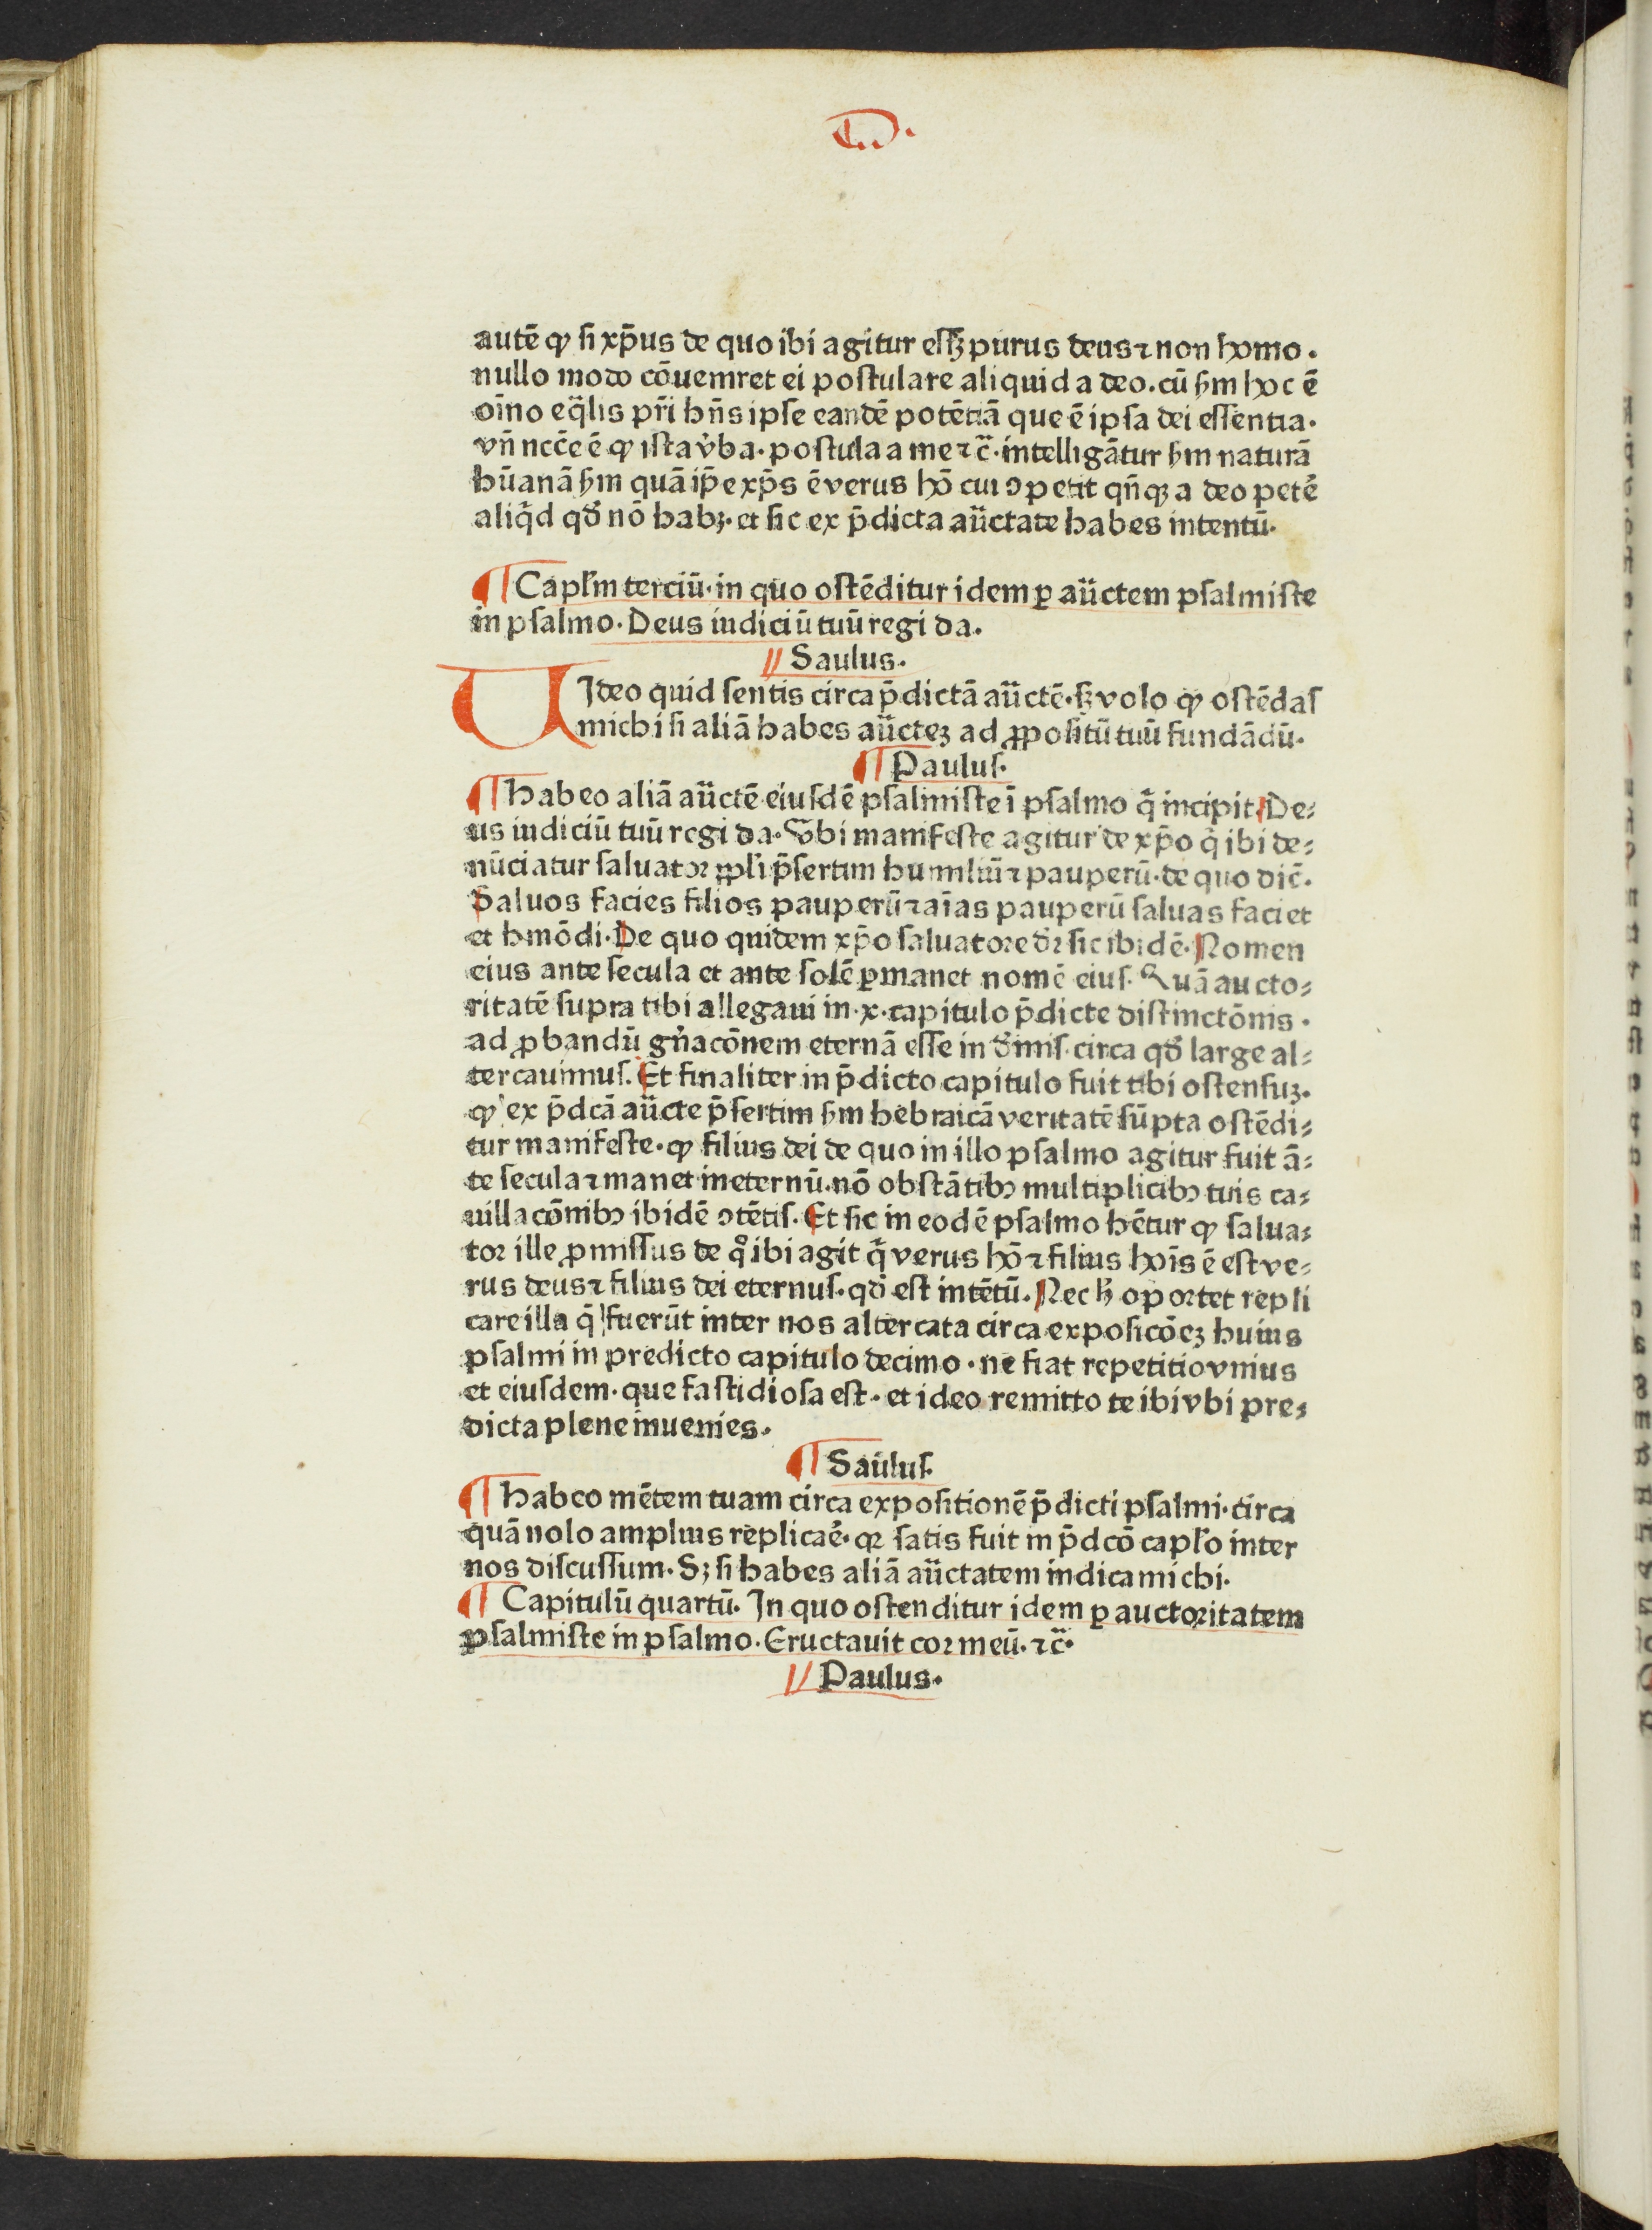 autē ꝙ ſi xp̄us de quo ibi agitur eſſꝫ purus deus ⁊ non homo.
nullo modo cōuemret ei poſtulare aliquid a deo. cū ẜm hoc ē
oīno eq̄lis pr̄i hn̄s ipſe eandē potētiā que ē ipſa dei eſſentia.
vn̄ nc̄ce ē ꝙ iſta v̓ba. poſtula a me ⁊c̄. intelligātur ẜm naturā
hūanā ẜm quā ip̄e xp̄s ē verus hō cui ↄpetit qn̄qꝫ a deo pete᷑
aliq̄d qď nō habꝫ. et ſic ex p̄dicta auc̈tate habes intentū.
¶ Capl̓m terciū. in quo oſtēditur idem ꝑ auc̈tem pſalmiſte
in pſalmo. Deus iudiciū tuū regi da.
// Saulus.
UIdeo quid ſentis circa p̄dictā auc̈tē. ſꝫ volo ꝙ oſtēdaſ
michi ſi aliā habes auc̈teꝫ ad ꝓpoſitū tuū fundādū.
¶ Pauluſ.
¶ habeo aliā auc̈tē eiuſdē pſalmiſte ī pſalmo q̄ incipit. De⸗
us iudiciū tuū regi da. Vbi manifeſte agitur de xp̄o q̄ ibi de⸗
nūciatur ſaluatoꝛ ppl̓i p̄ſertim humiliū ⁊ pauperū. de quo dic̄.
Saluos facies filios pauperū ⁊ aīas pauperū ſaluas faciet
et hmōdi. De quo quidem xp̄o ſaluatore dꝛ̄ ſic ibidē. Nomen
eius ante ſecula et ante ſolē ꝑmanet nomē eiuſ. Quā aucto⸗
ritatē ſupra tibi allegaui in .x. capitulo p̄dicte diſtinctōnis.
ad ꝓbandū gn̓acōnem eternā eſſe in d̓iniſ. circa qď large al⸗
tercauimuſ. Et finaliter in p̄dicto capitulo fuit tibi oſtenſuꝫ.
ꝙ ex p̄dcā auc̈te p̄ſertim ẜm hebraicā veritatē ſūpta oſtēdi⸗
tur manifeſte. ꝙ filius dei de quo in illo pſalmo agitur fuit ā⸗
te ſecula ⁊ manet ineternū. nō obſtātibꝰ multiplicibꝰ tuis ca⸗
uillacōnibꝰ ibidē ↄtētiſ. Et ſic in eodē pſalmo hētur ꝙ ſalua⸗
toꝛ ille ꝓmiſſus de qͦ ibi agit̄ q̄ verus hō ⁊ filius hoīs ē eſt ve⸗
rus deus ⁊ filius dei eternuſ. qď eſt intētū. Nec hͦ opoꝛtet repli
care illa q̄ fuerūt inter nos altercata circa expoſicōeꝫ huius
pſalmi in predicto capitulo decimo. ne fiat repetitio vnius
et eiuſdem. que faſtidioſa eſt. et ideo remitto te ibi vbi pre⸗
dicta plene inuenies.
¶ Sauluſ.
¶ habeo mētem tuam circa expoſitionē p̄dicti pſalmi. circa
quā nolo amplius replica᷑e. qꝛ ſatis fuit in p̄dcō capl̓o inter
nos diſcuſſum. Sꝫ ſi habes aliā auc̈tatem indica michi.
¶ Capitulū quartū. In quo oſtenditur idem ꝑ auctoꝛitatem
pſalmiſte in pſalmo. Eructauit coꝛ meū. ⁊c̄.
// Paulus.